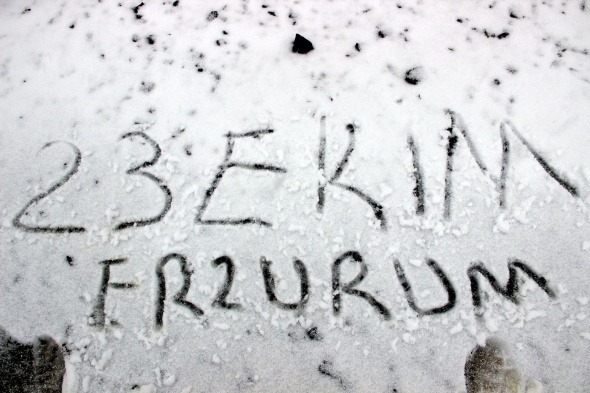 23 EKİM
ERZURUM